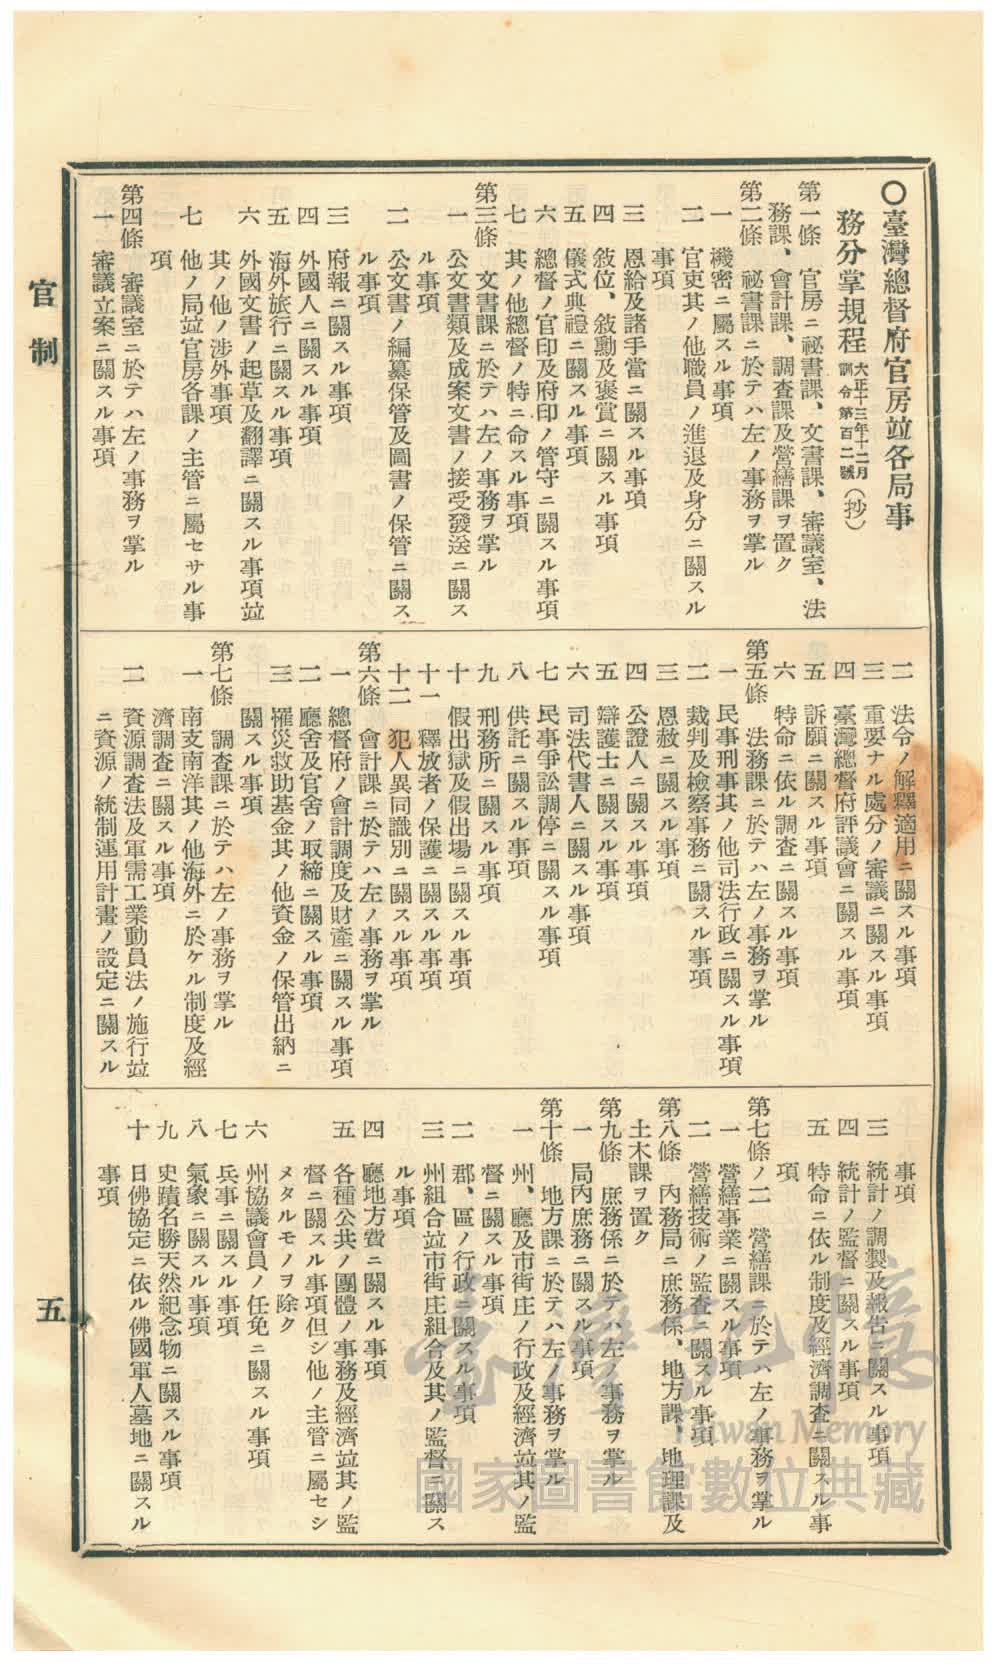 〇臺灣總督府官房竝各局事
務分掌規程 大正十三年十二月
訓令第百二號 (抄)
第一條　官房ニ祕書課、文書課、審議室、法
務課、會計課、調査課及營繕課ヲ置ク
第二條　祕書課ニ於テハ左ノ事務ヲ掌ル
一　機密ニ屬スル事項
二　官吏其ノ他職員ノ進退及身分ニ關スル
事項
三　恩給及諸手當ニ關スル事項
四　敍位、敍勳及褒賞ニ關スル事項
五　儀式典禮ニ關スル事項
六　總督ノ官印及府印ノ管守ニ關スル事項
七　其ノ他總督ノ特ニ命スル事項
第三條　文書課ニ於テハ左ノ事務ヲ掌ル
一　公文書類及成案文書ノ接受發送ニ關ス
ル事項
二　公文書ノ編纂保管及圖書ノ保管ニ關ス
ル事項
三　府報ニ關スル事項
四　外國人ニ關スル事項
五　海外旅行ニ關スル事項
六　外國文書ノ起草及翻譯ニ關スル事項竝
其ノ他ノ涉外事項
七　他ノ局竝官房各課ノ主管ニ屬セサル事
項
第四條　審議室ニ於テハ左ノ事務ヲ掌ル
一　審議立案ニ關スル事項
二　法令ノ解釋適用ニ關スル事項
三　重要ナル處分ノ審議ニ關スル事項
四　臺灣總督府評議會ニ關スル事項
五　訴願ニ關スル事項
六　特命ニ依ル調査ニ關スル事項
第五條　法務課ニ於テハ左ノ事務ヲ掌ル
一　民事刑事其ノ他司法行政ニ關スル事項
二　裁判及檢察事務ニ關スル事項
三　恩赦ニ關スル事項
四　公證人ニ關スル事項
五　辯護士ニ關スル事項
六　司法代書人ニ關スル事項
七　民事爭訟調停ニ關スル事項
八　供託ニ關スル事項
九　刑務所ニ關スル事項
十　假出獄及假出場ニ關スル事項
十一　釋放者ノ保護ニ關スル事項
十二　犯人異同識別ニ關スル事項
第六條　會計課ニ於テハ左ノ事務ヲ掌ル
一　總督府ノ會計調度及財產ニ關スル事項
二　廳舍及官舍ノ取締ニ關スル事項
三　罹災救助基金其ノ他資金ノ保管出納ニ
關スル事項
第七條　調査課ニ於テハ左ノ事務ヲ掌ル
一　南支南洋其ノ他海外ニ於ケル制度及經
濟調査ニ關スル事項
二　資源調査法及軍需工業動員法ノ施行竝
ニ資源ノ統制運用計畫ノ設定ニ關スル
事項
三　統計ノ調製及報告ニ關スル事項
四　統計ノ監督ニ關スル事項
五　特命ニ依ル制度及經濟調査ニ關スル事
項
第七條ノ二　營繕課ニ於テハ左ノ事務ヲ掌ル
一　營繕事業ニ關スル事項
二　營繕技術ノ監査ニ關スル事項
第八條　內務局ニ庶務係、地方課、地理課及
土木課ヲ置ク
第九條　庶務係ニ於テハ左ノ事務ヲ掌ル
一　局內庶務ニ關スル事項
第十條　地方課ニ於テハ左ノ事務ヲ掌ル
一　州、廳及市街庄ノ行政及經濟竝其ノ監
督ニ關スル事項
二　郡、區ノ行政ニ關スル事項
三　州組合竝市街庄組合及其ノ監督ニ關ス
ル事項
四　廳地方費ニ關スル事項
五　各種公共ノ團體ノ事務及經濟竝其ノ監
督ニ關スル事項但シ他ノ主管ニ屬セシ
メタルモノヲ除ク
六　州協議會員ノ任免ニ關スル事項
七　兵事ニ關スル事項
八　氣象ニ關スル事項
九　史蹟名勝天然紀念物ニ關スル事項
十　日佛協定ニ依ル佛國軍人墓地ニ關スル
事項
官制
五
臺灣記憶
Taiwan Memory
國家圖書館數位典藏